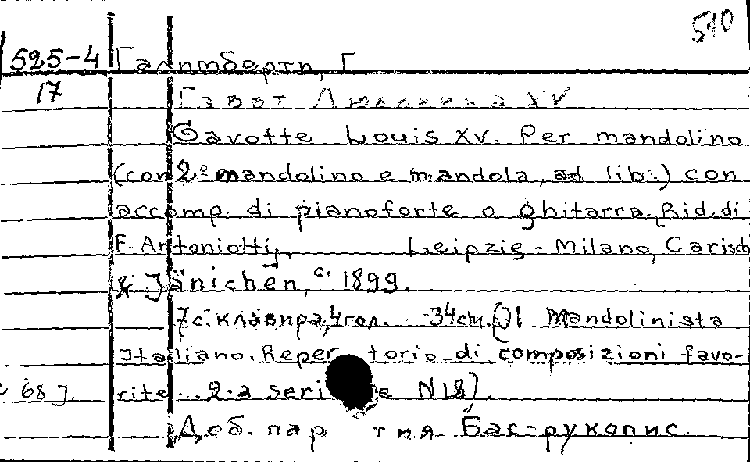 510
525-4 Галимберти, Г
17 Гавот Людовика XV
Gavotte Louis XV. Per mandolino
(con 2º mandolino e mandola, ad lib.) con
accomp. di pianoforte o ghitarra. Rid. di
F. Antoniotti. Leipzig - Milano, Carisch
& Jänichen, c. 1899.
7 с. клавира, 4 гол. 34 см. (Il Mandolinista
Italiano. Repertorio di composizioni favo-
68] rite. 2-a serie N 18).
Доб. партия Бас-рукопис.